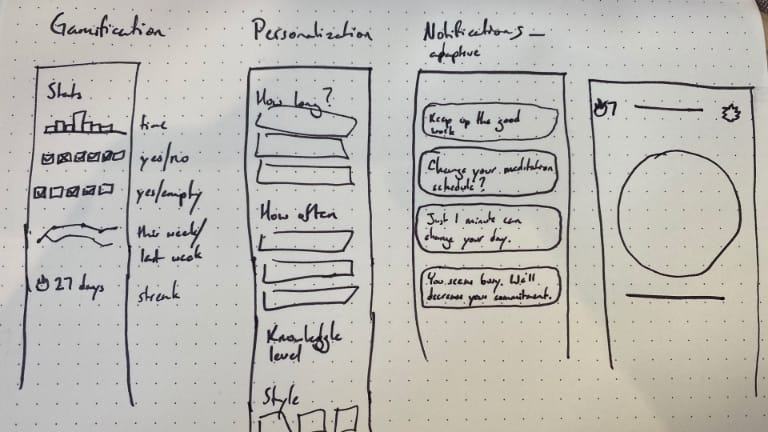 Gamification
Stats
time
yes/no
yes/empty
this week/
last week
27 days
streak
Personalization
How long?
How often
Knowledge
level
Style
Notifications -
adaptive
Keep up the good
work
Change your meditation
schedule?
Just 1 minute can
change your day.
You seem busy. We'll
decrease your commitment.
7